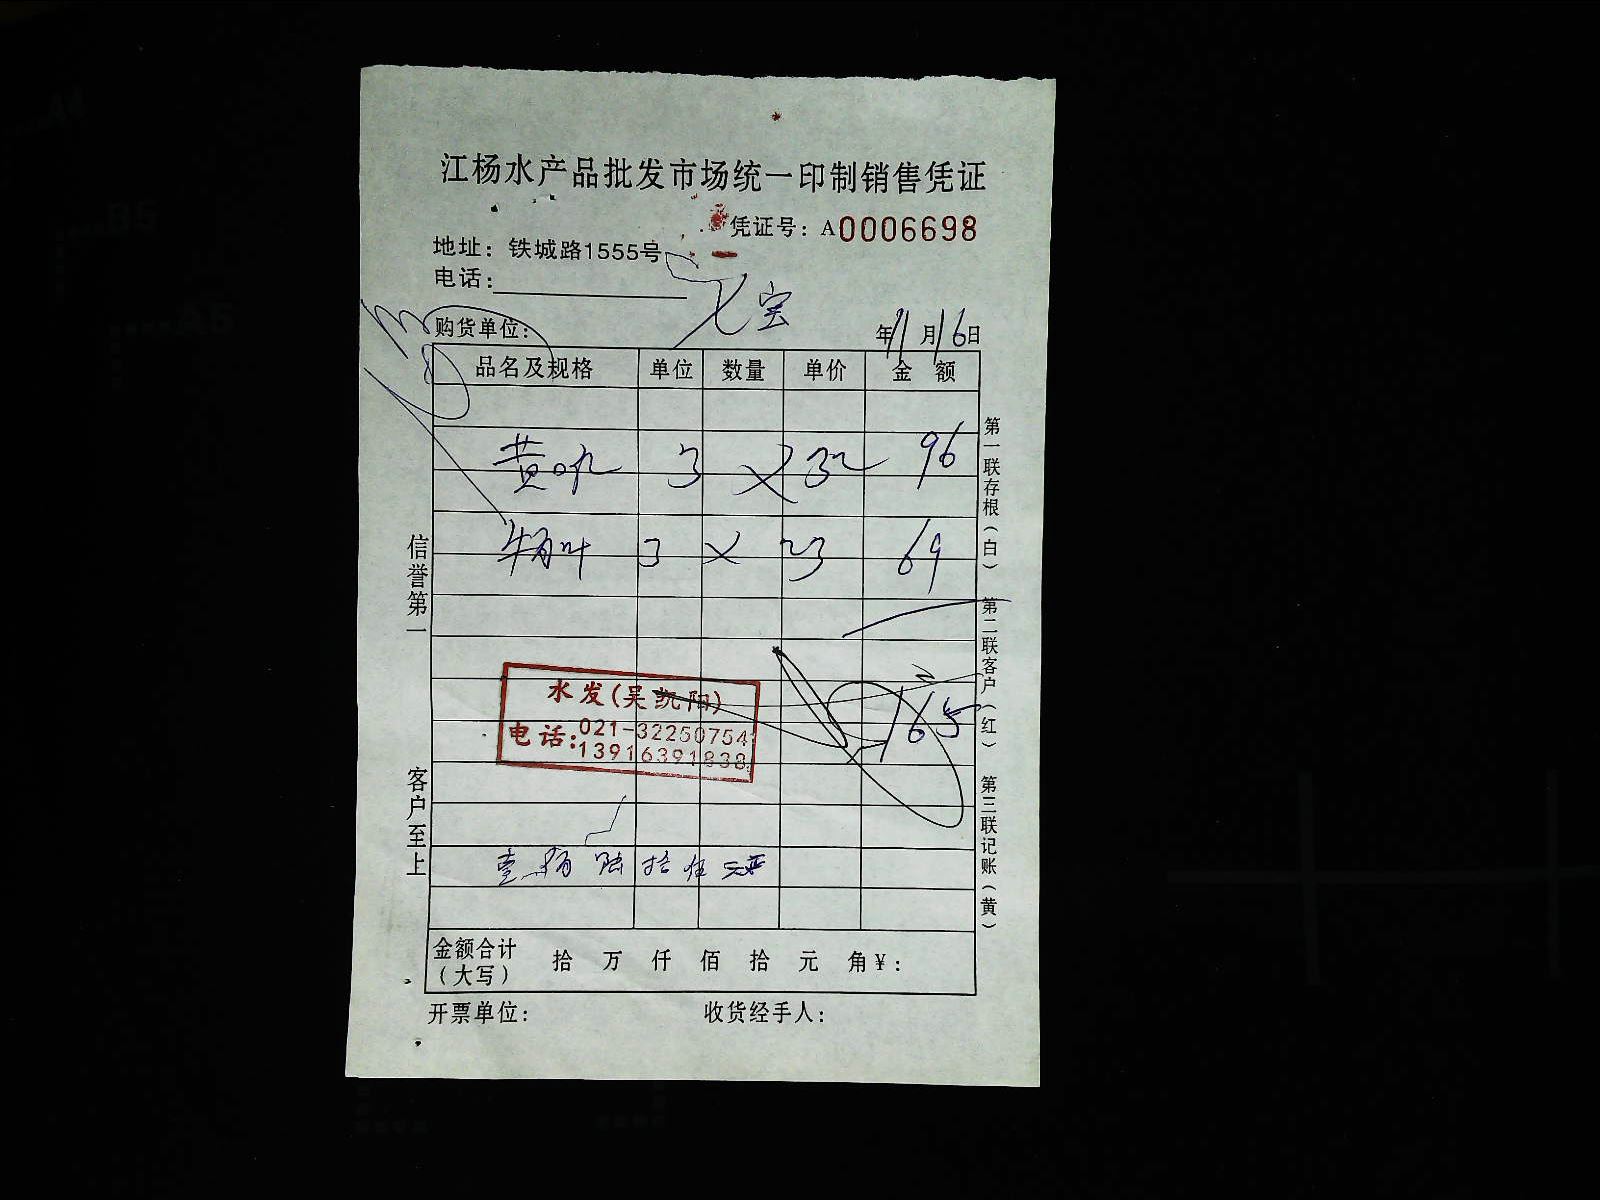 江杨水产品批发市场统一印制销售凭证
凭证号：A0006698
地址：铁城路1555号
电话：
七宝
购货单位：
年11月16日
品名及规格 单位 数量 单价 金额
黄喉 3 × 32 96
牛百叶 3 × 23 69
165
水发(吴凯阳)
电话：021-32250754
13916391838
壹佰陆拾伍元正
金额合计（大写） 拾 万 仟 佰 拾 元 角 ¥：
开票单位： 收货经手人：
信誉第一
客户至上
第一联存根（白）
第二联客户（红）
第三联记账（黄）